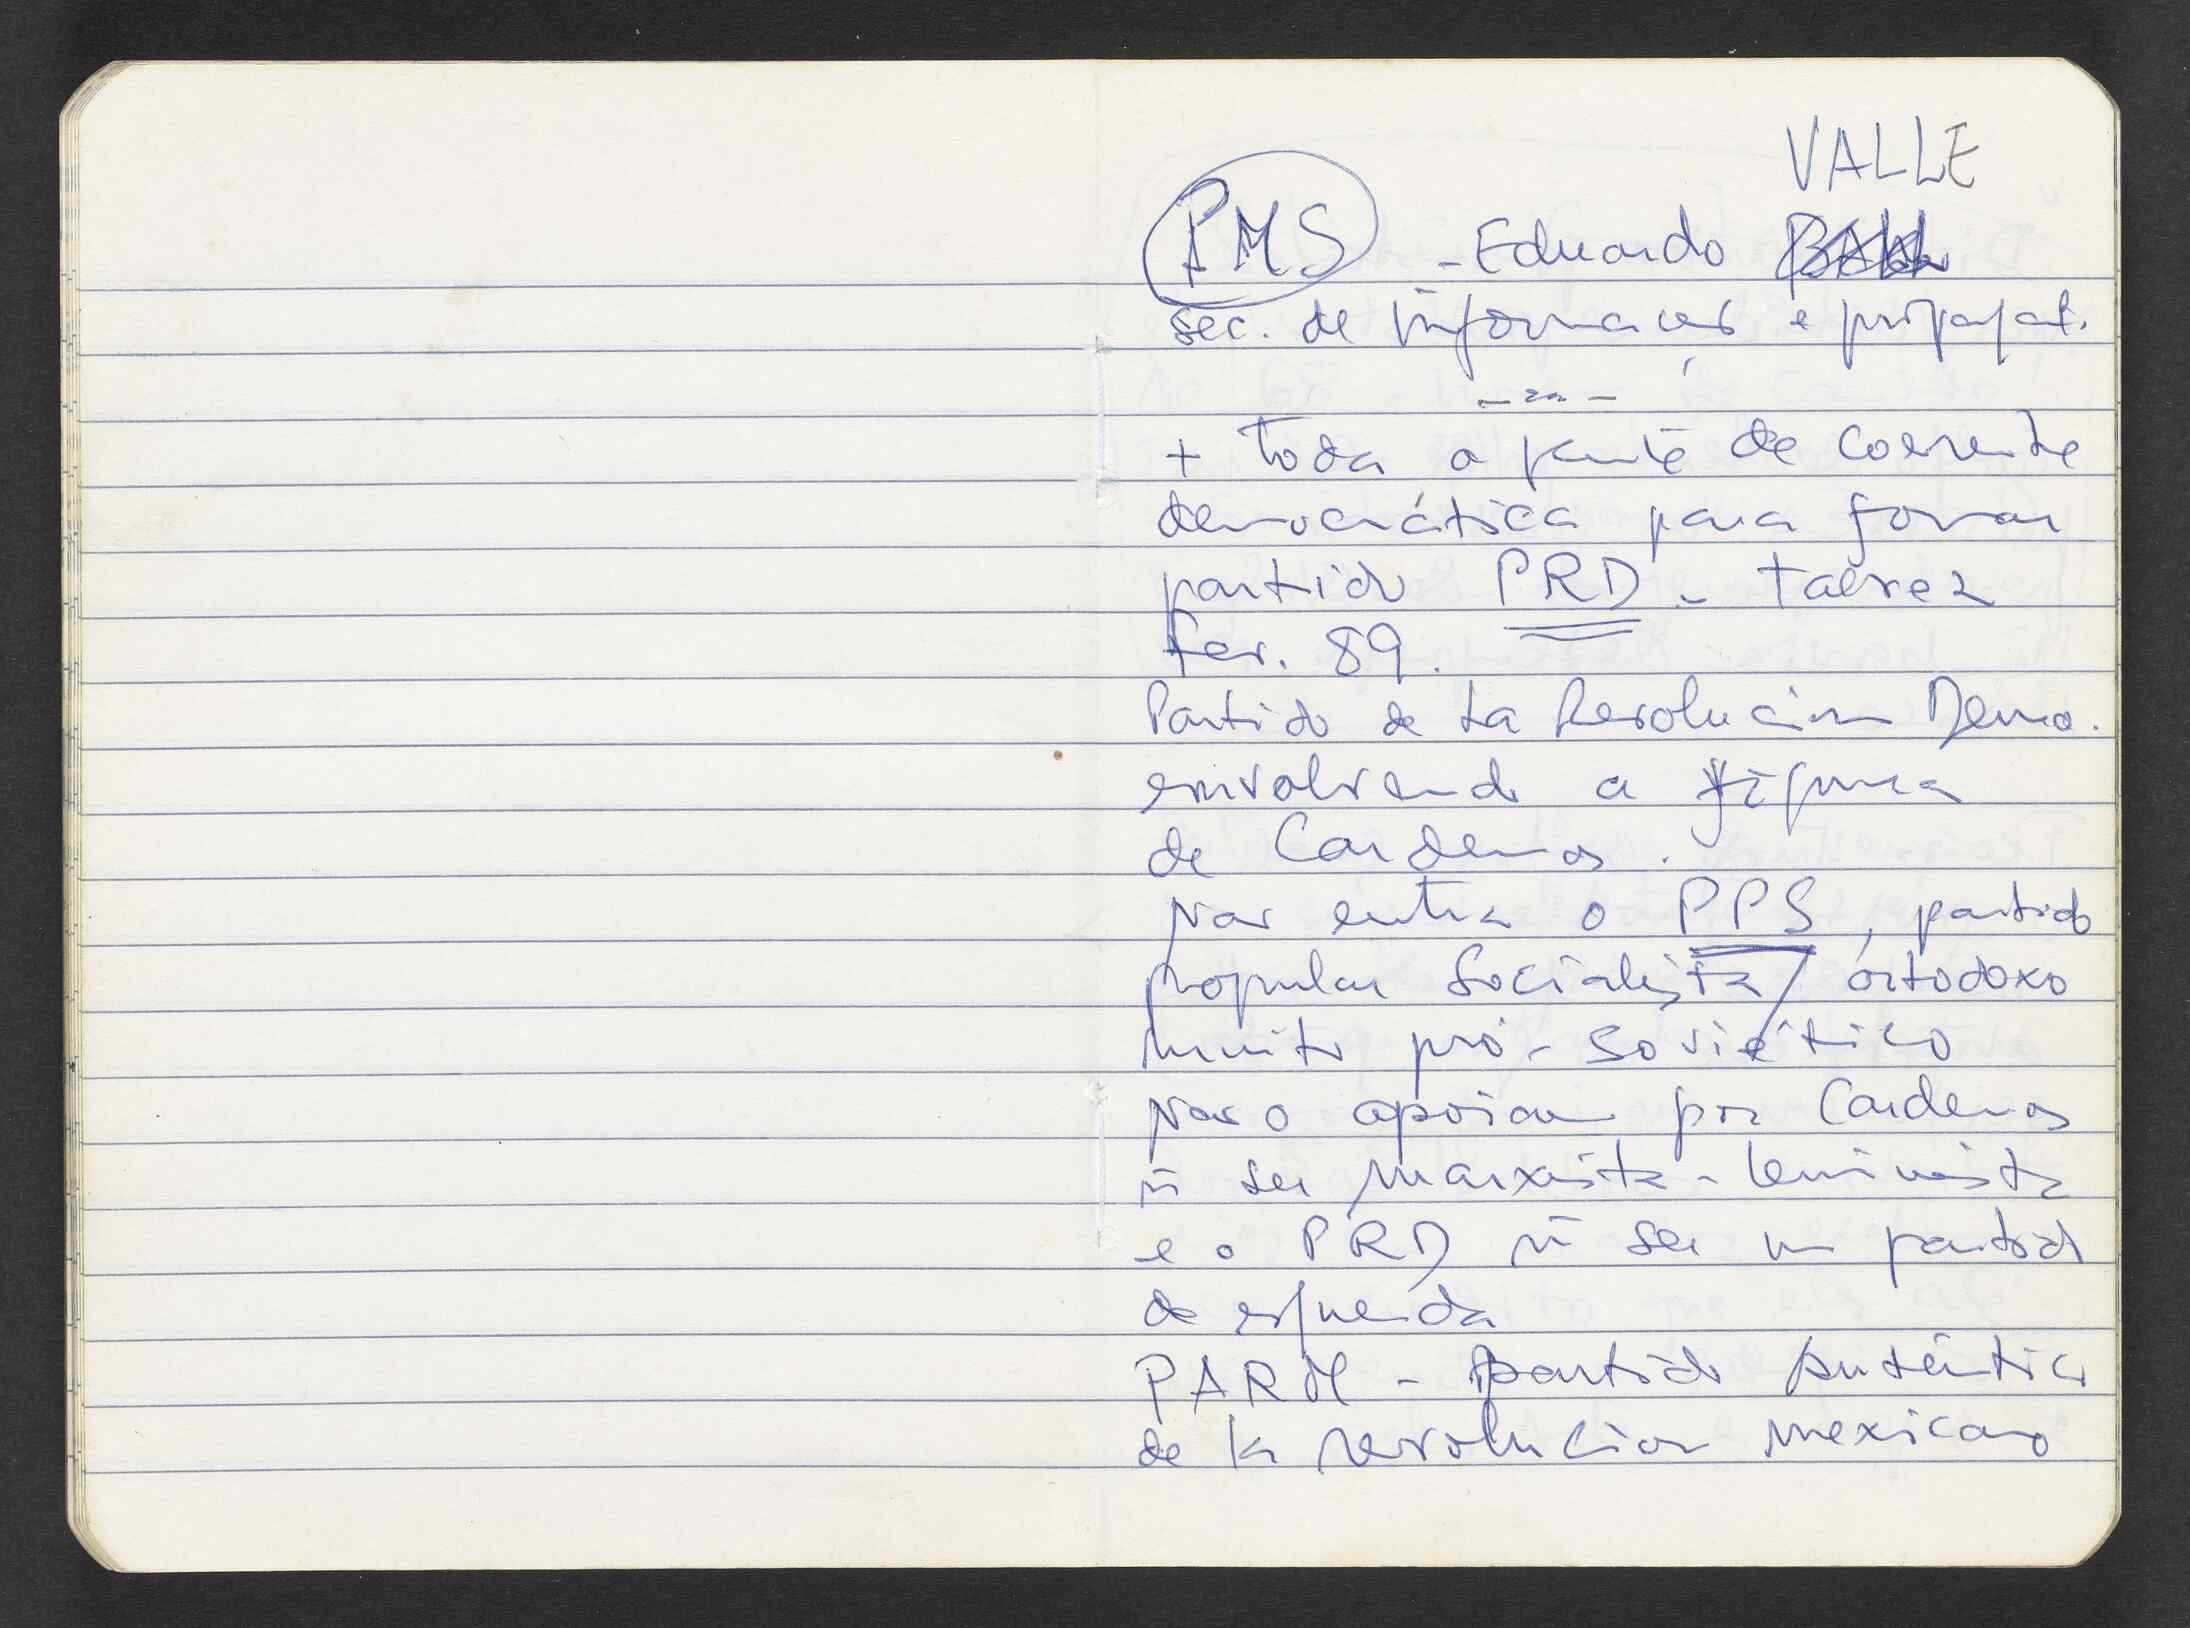 VALLE
PMS - Eduardo
sec. de informaciones e propagat.
+ toda a gente de corrente
democrática para formar
partido PRD - talvez
fev. 89.
Partido de La Revolucion Demo.
envolvendo a figura
de Cardenas.
não entra o PPS, partido
popular Socialista / ortodoxo
muito pró-soviético
não o apoiam por Cardenas
ñ ser marxista-leninista
e o PRD ñ ser um partido
de esquerda
PARM - partido autêntico
de la revolucion mexicano